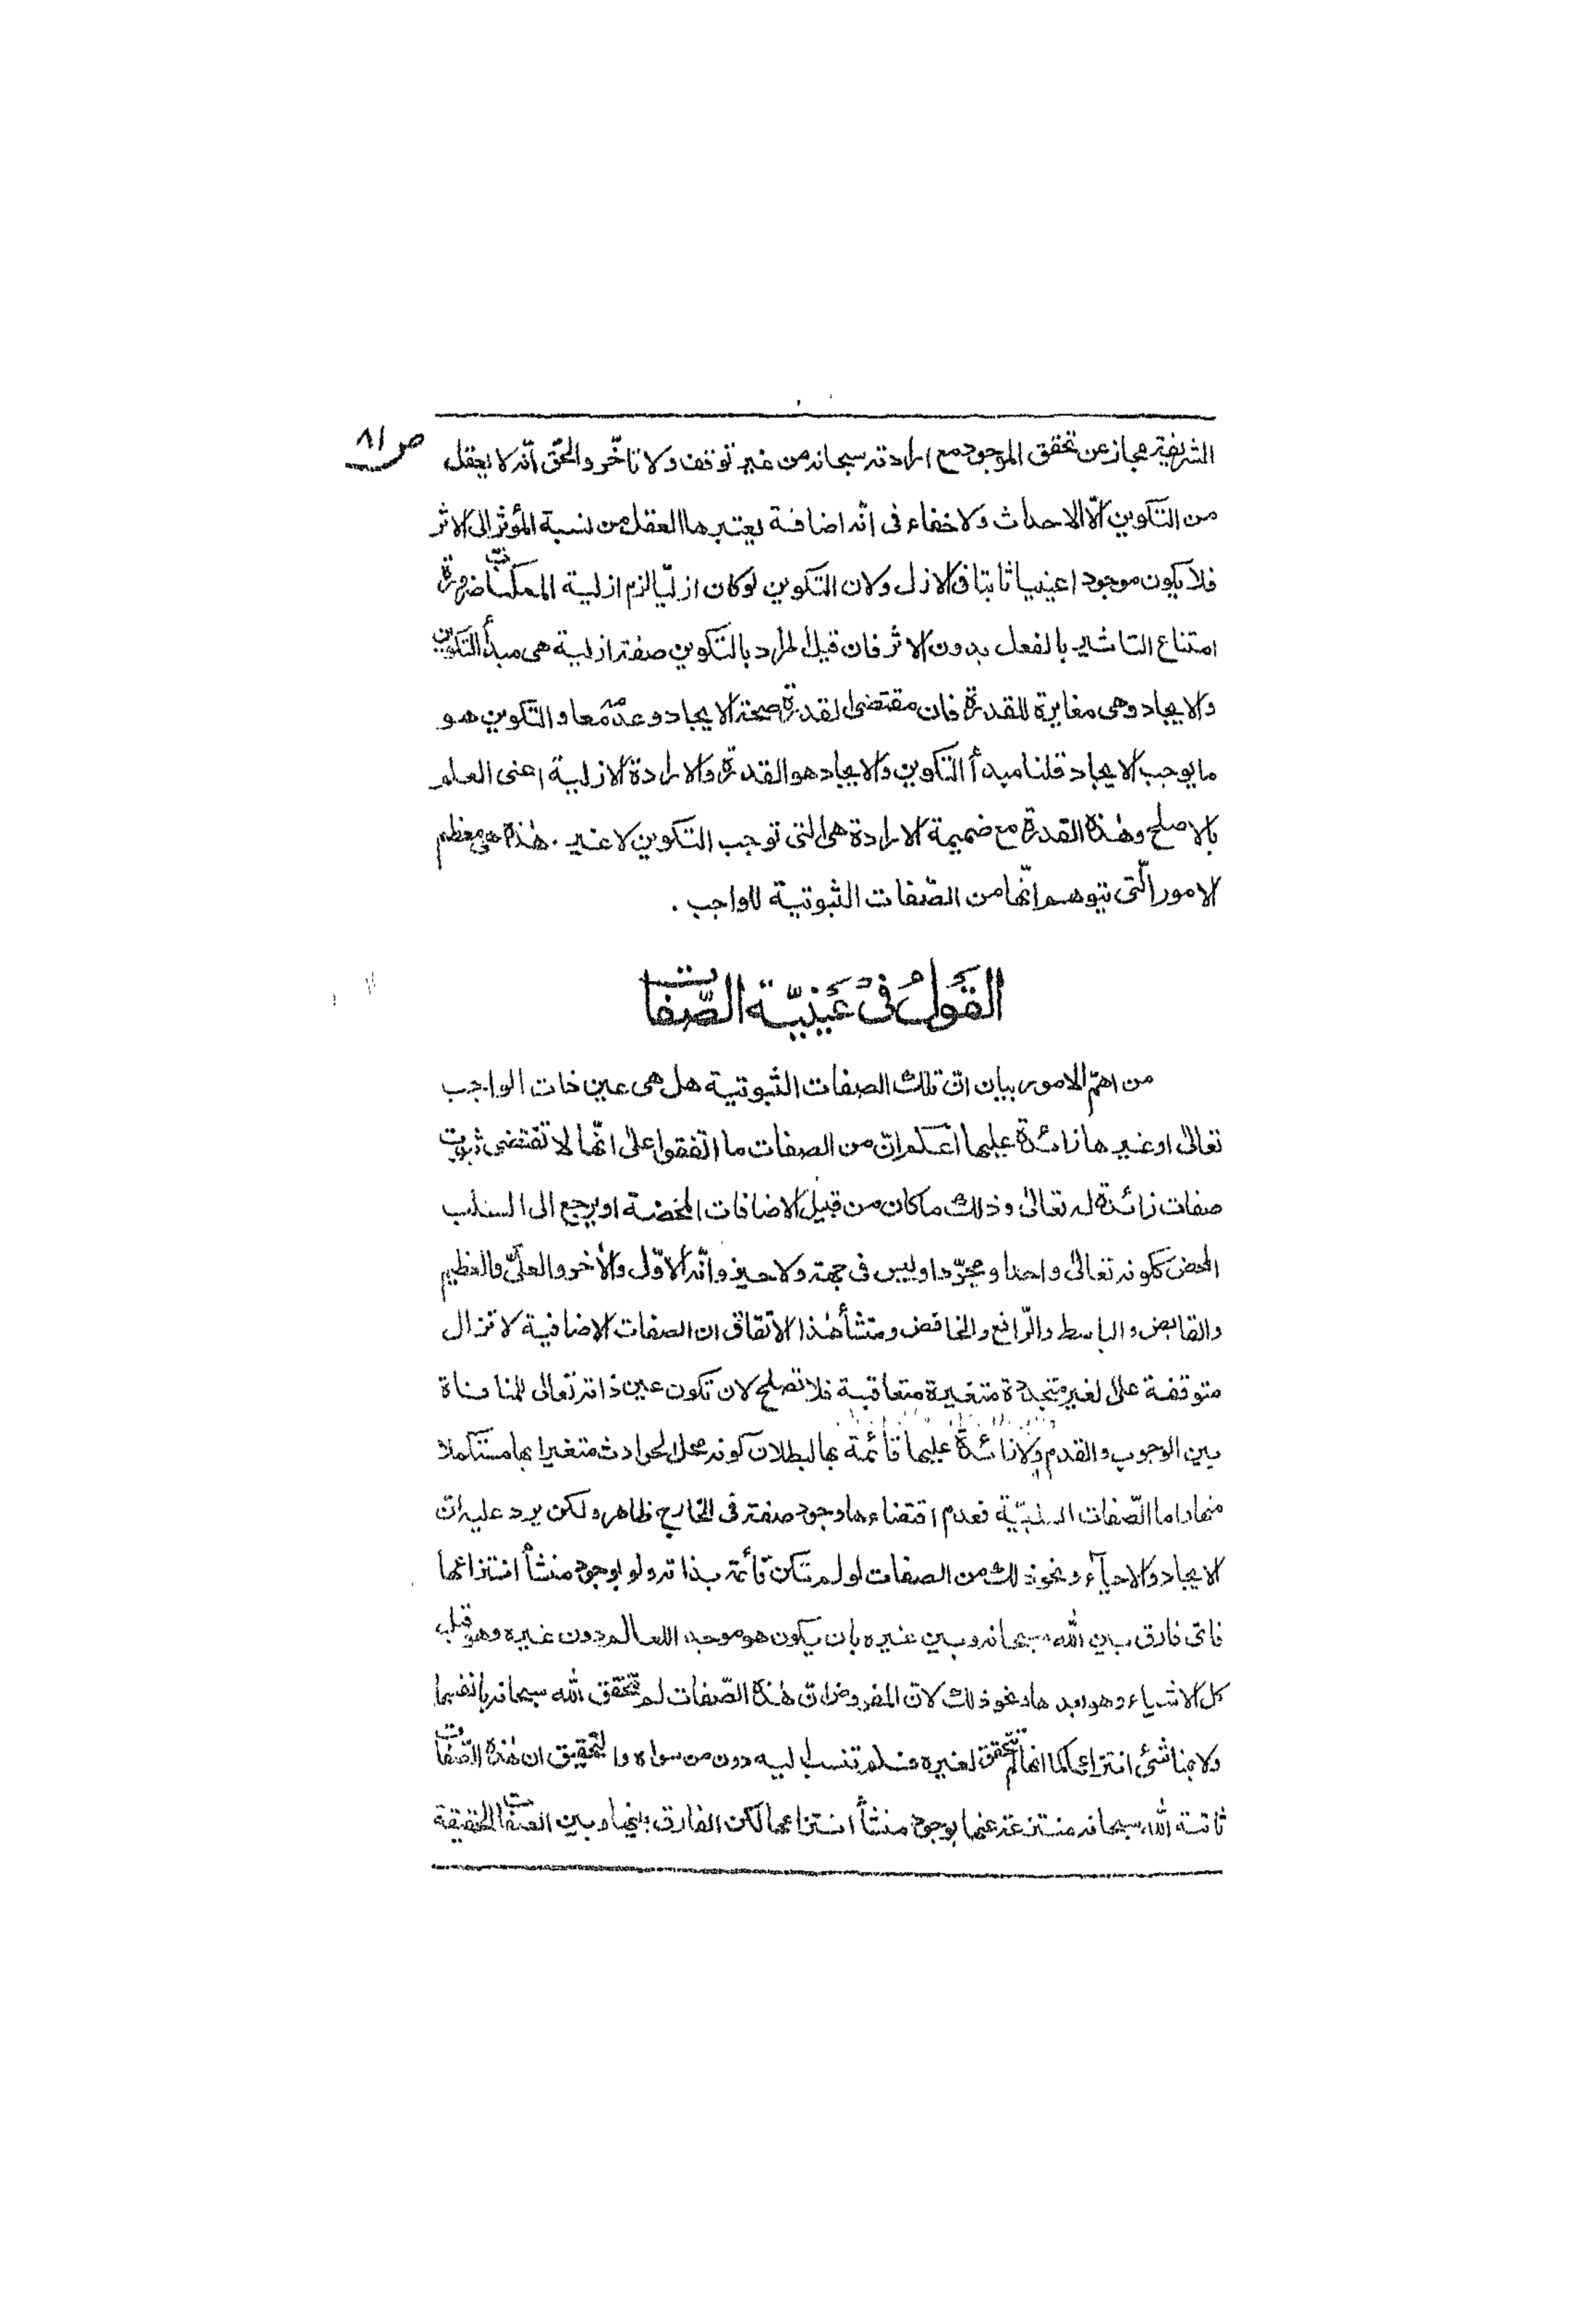 ص ٨١
الشريفة مجاز عن تحقق الموجود مع ارادته سبحانه من غير توقف ولا تأخّر والحقّ انّه لا يعقل
من التكوين الّا الاحداث ولا خفاء فى انّه اضافة يعتبرها العقل من نسبة المؤثر الى الاثر
فلا يكون موجودا عينيا ثابتا فى الازل ولان التكوين لو كان ازليّا لزم ازلية الممكنات ضرورة
امتناع التاثير بالفعل بدون الاثر فان قيل المراد بالتكوين صفة ازلية هى مبدأ التكوين
والايجاد وهى مغايرة للقدرة فان مقتضى القدرة صحة الايجاد وعدمه معا والتكوين هو
ما يوجب الايجاد قلنا مبدأ التكوين والايجاد هو القدرة والارادة الازلية اعنى العلم
بالاصلح وهذه القدرة مع ضميمة الارادة هى التى توجب التكوين لا غير . هذه هى معظم
الامور الّتى يتوهم انّها من الصّفات الثبوتية للواجب .
القَولُ فى عَينيّة الصّفات
من اهمّ الامور بيان انّ تلك الصفات الثبوتية هل هى عين ذات الواجب
تعالى او غيرها زائدة عليها اعلم انّ من الصفات ما اتّفقوا على انّها لا تقتضى ثبوت
صفات زائدة له تعالى وذلك ما كان من قبيل الاضافات المحضة او يرجع الى السلب
المحض ككونه تعالى واحدا ومجرّدا وليس فى جهة ولا حيز وانّه الاوّل والأخر والعلىّ والعظيم
والقابض والباسط والرّافع والخافض ومنشأ هذا الاتفاق ان الصفات الاضافية لا تزال
متوقفة على الغير متجددة متغيرة متعاقبة فلا تصلح لان تكون عين ذاته تعالى للمنافاة
بين الوجوب والقدم ولا زائدة عليها قائمة بها لبطلان كونه محل الحوادث متغيرا بها مستكملا
منها واما الصّفات السلبيّة فعدم اقتضاءها وجود صفة فى الخارج ظاهر ولكن يرد عليه انّ
الايجاد والاحيآء ونحو ذلك من الصفات لو لم تكن قائمة بذاته ولو بوجود منشأ انتزاعها
فاىّ فارق بين الله سبحانه وبين غيره بان يكون هو موجد اللعالم دون غيره وهو قبل
كل الاشياء وهو بعدها ونحو ذلك لانّ المفروض انّ هذه الصّفات لم تتحقق لله سبحانه بانفسها
ولا بمناشئ انتزاعها كما انها لم تتحقق لغيره فلم تنسب اليه دون من سواه والتحقيق ان هذه الصّفات
ثابتة لله سبحانه منتزعة عنها بوجود منشأ انتزاعها لكن الفارق بينها وبين الصفات الحقيقة